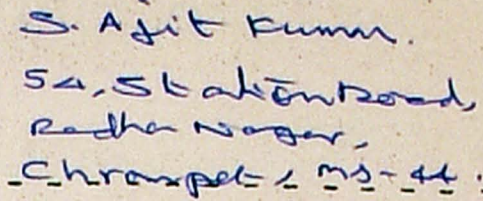 S. Ajit Kumar.
54, Station Road,
Radha Nagar,
Chrompet, MS-44.